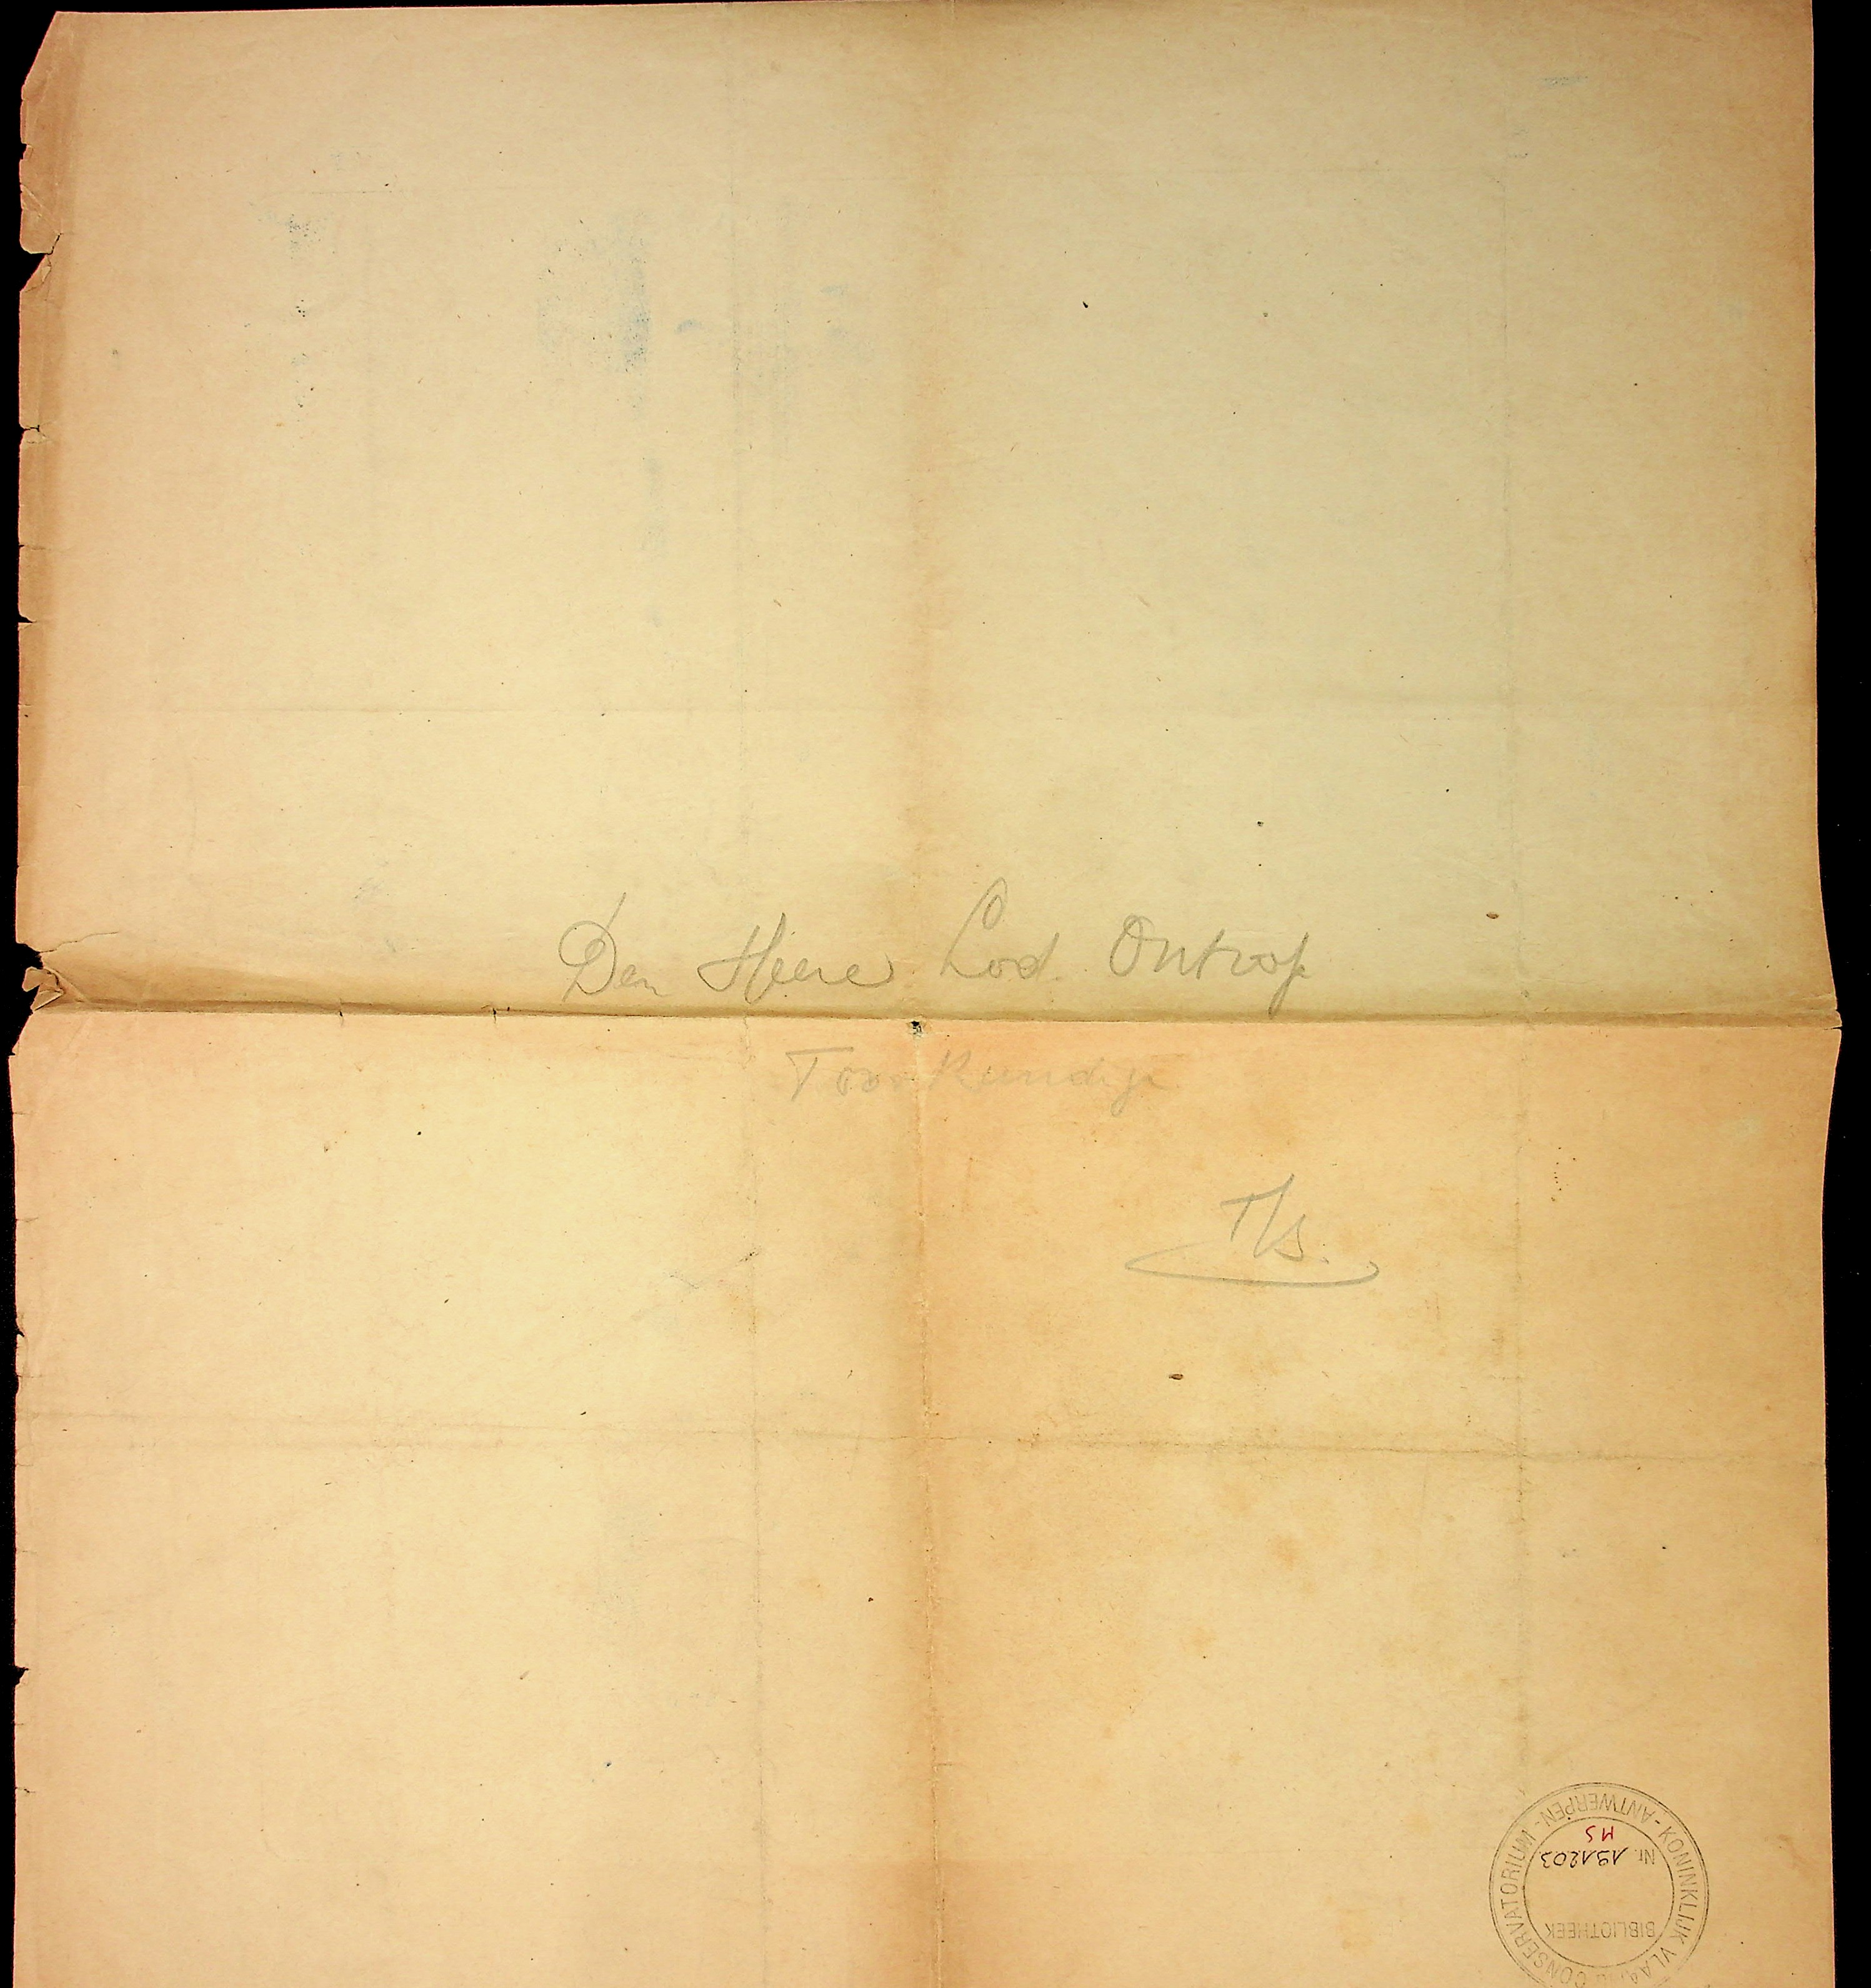 Den Heere Lod. Ontrop
Toonkundige
T/s.
KONINKLIJK VLAAMS CONSERVATORIUM - ANTWERPEN -
BIBLIOTHEEK
Nr. 191203
MS